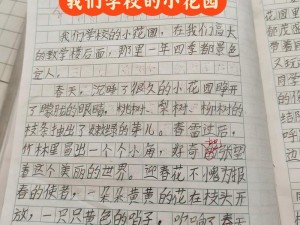 我们学校的小花园
我们学校的小花园，在我们高大
的教学楼后面，那里一年四季都景色
宜人。
春天，沉睡了很久的小花园睁开
了朦胧的眼睛，桃树、梨树、柳树的
枝条抽出了嫩绿的芽儿。春雷过后，
竹林里冒出一个个小，好奇地张望
着这个美丽的世界。迎春花不愧为报
春的使者，一朵朵黄黄的花在枝头开
放，一只只黄色的，吹响了春天